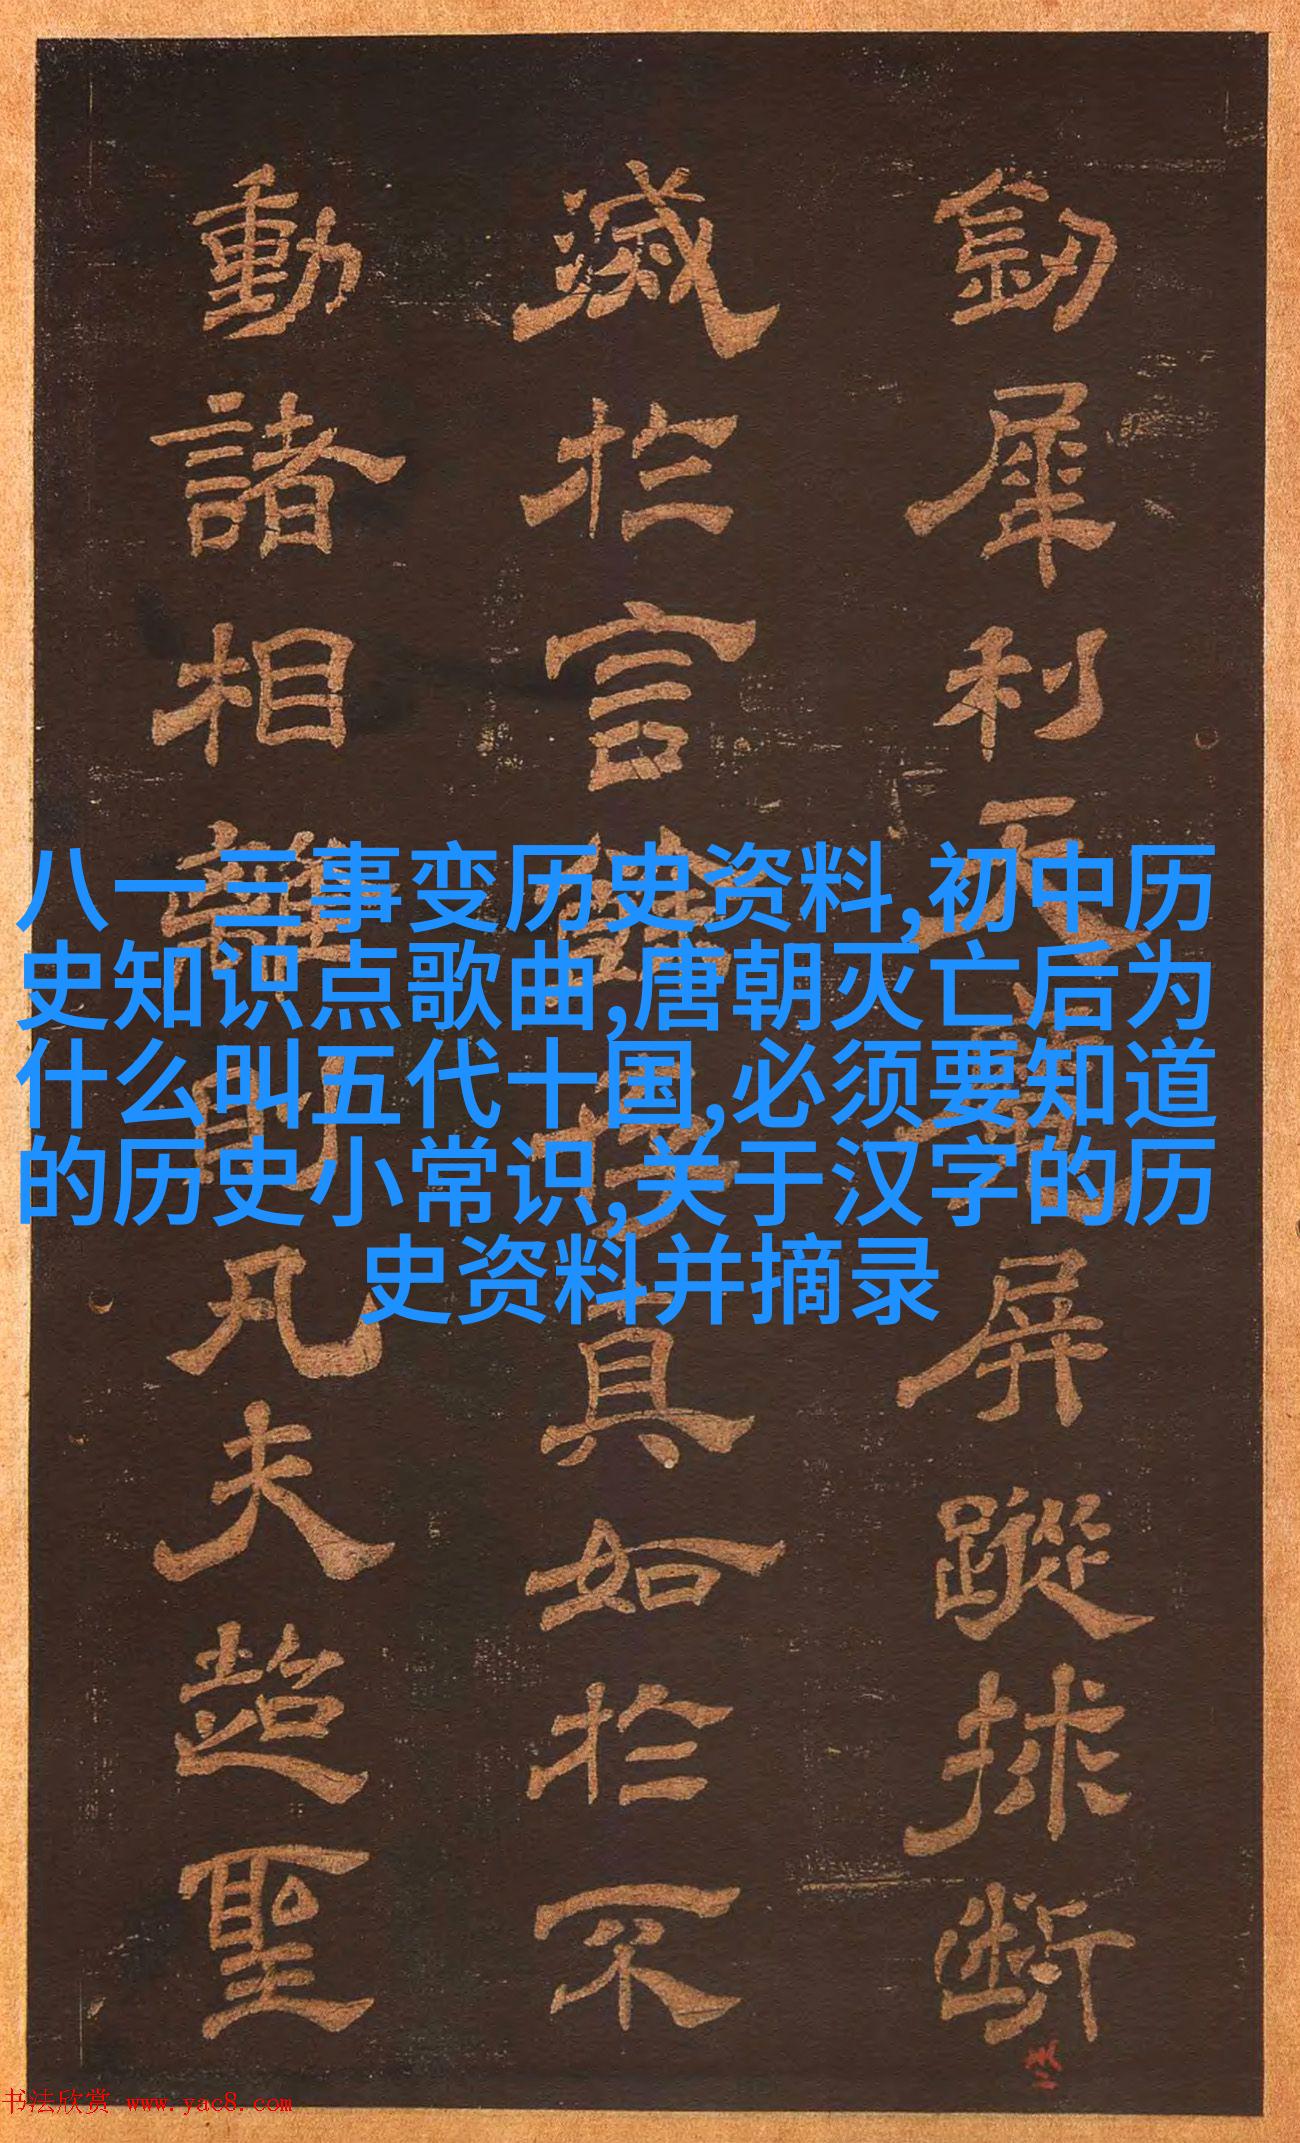 犀利天屏蹤斷
滅於言真如於不
動諸相離凡夫超聖
八一三事变历史资料,初中历
史知识点歌曲,唐朝灭亡后为
什么叫五代十国,必须要知道
的历史小常识,关于汉字的历
史资料并摘录
书法欣赏 www.yac8.com